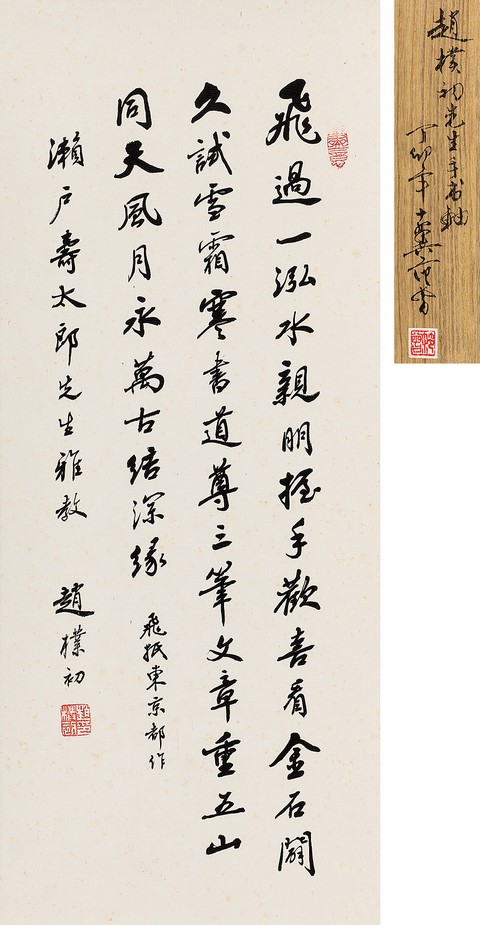 飛過一泓水親朋握手歡喜看金石
久試雪霜寒書道尊三筆文章重五山
同天風月永萬古結深緣
飛抵東京都作
瀨戶壽太郎先生雅教
趙樸初
趙樸初先生手書軸
丁卯年十翼范曾